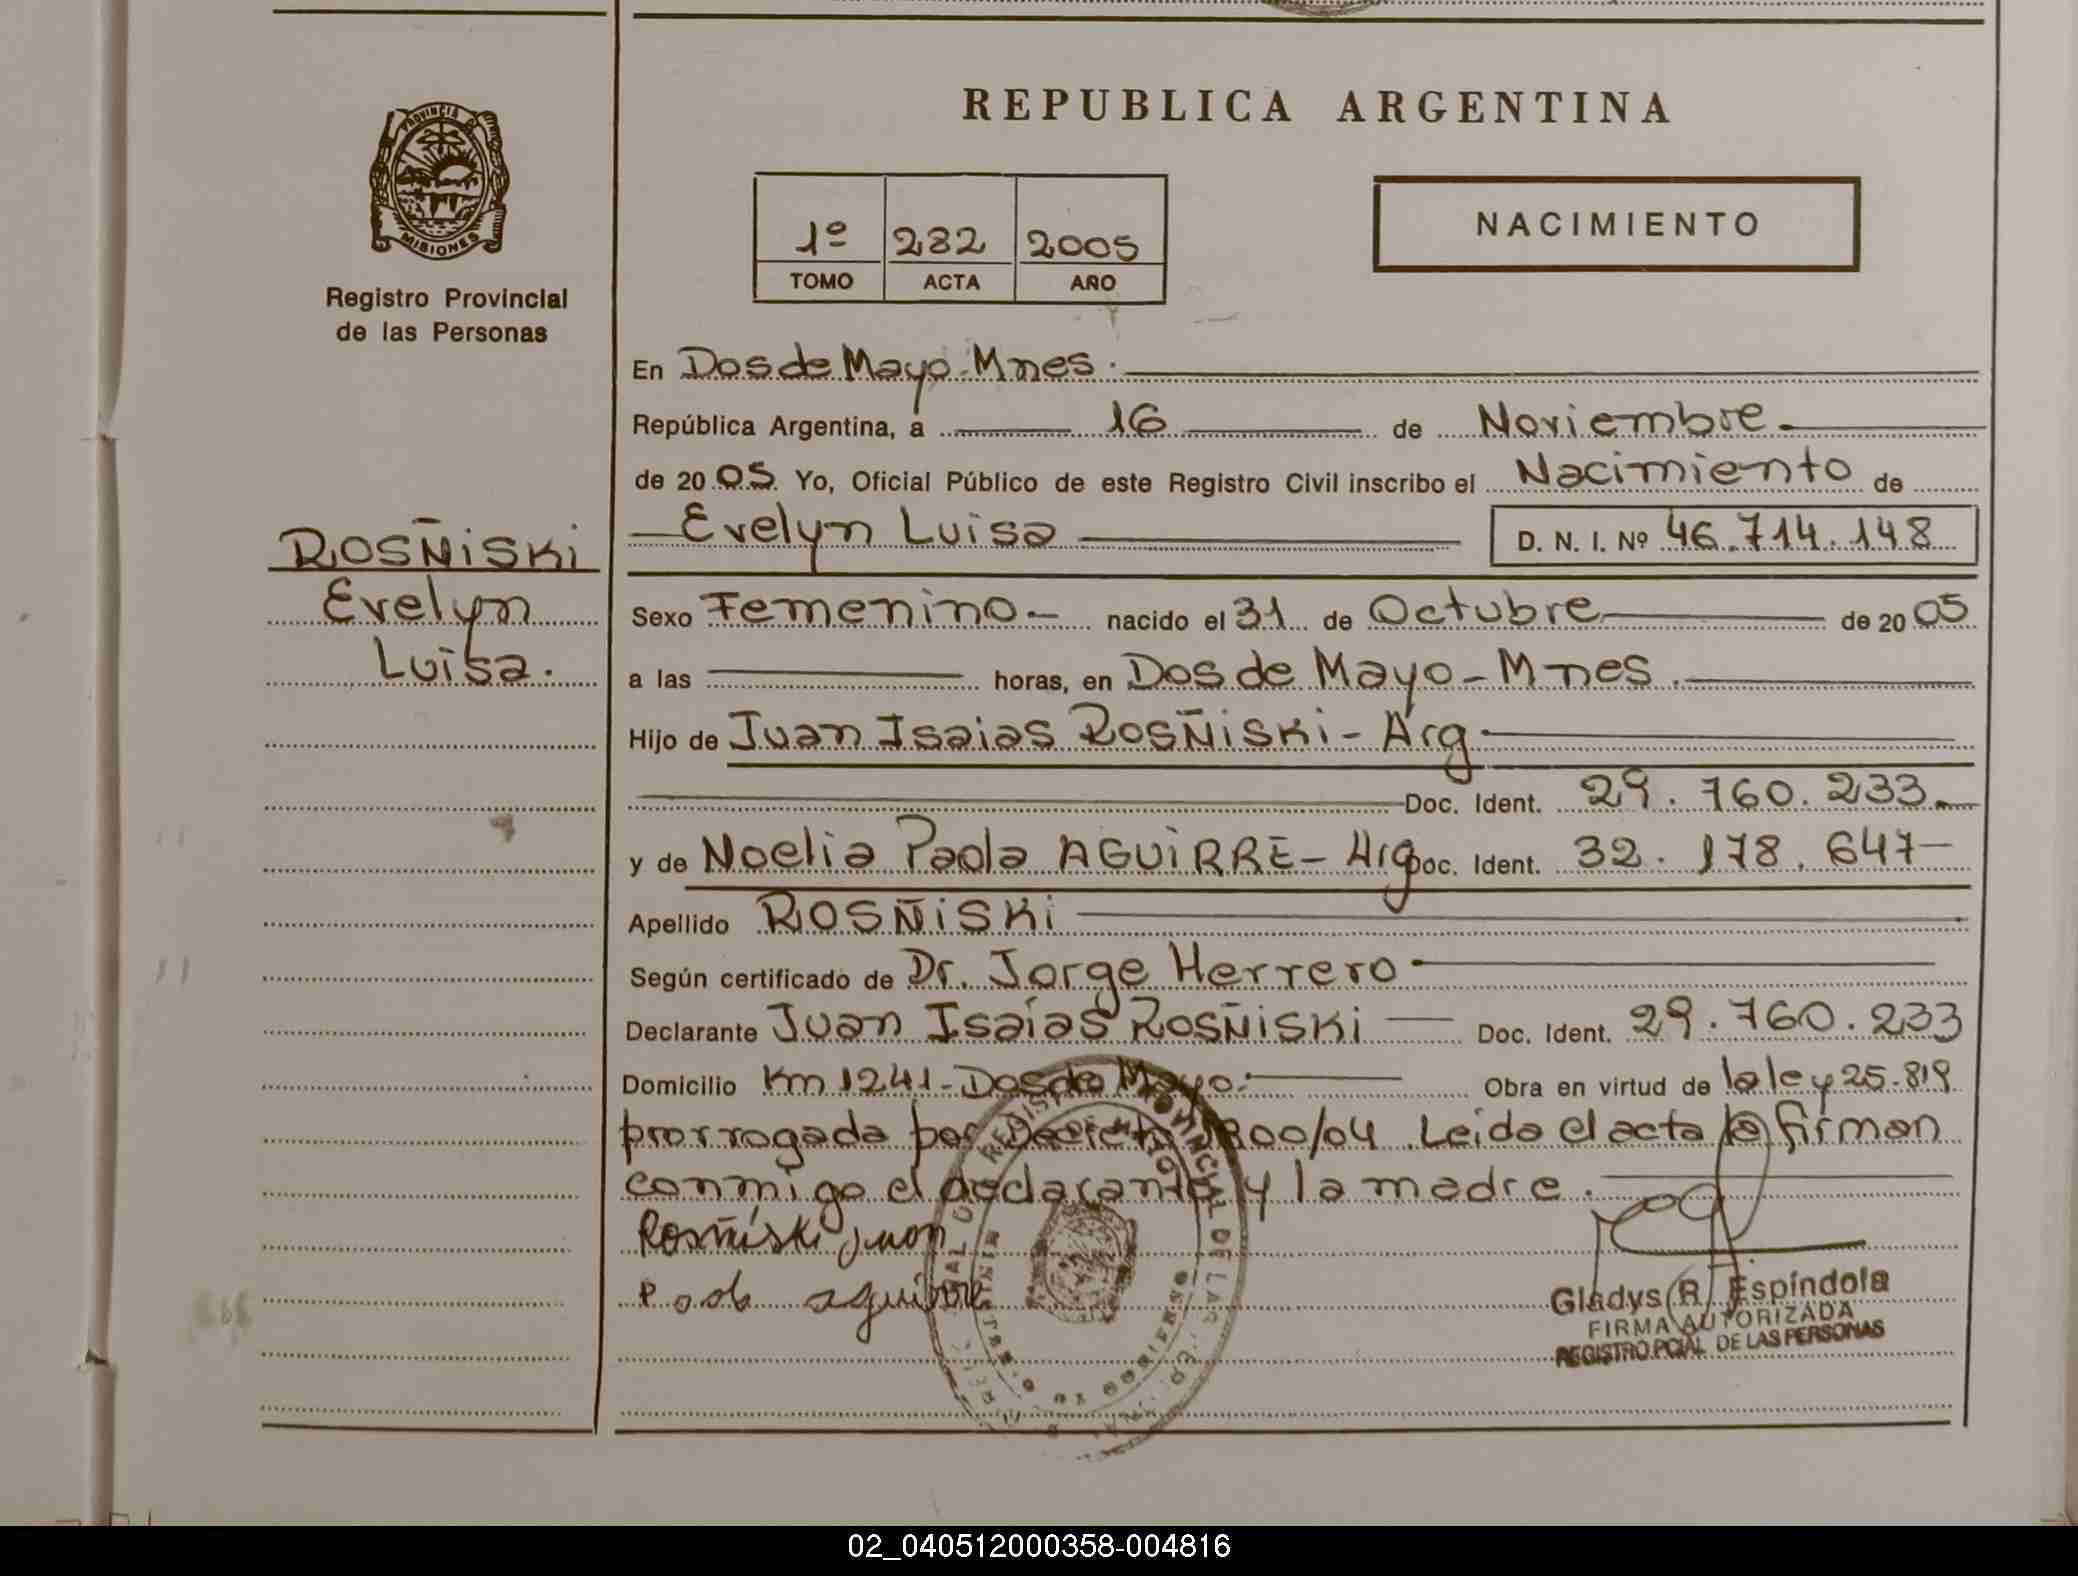 PROVINCIA DE
MISIONES
Registro Provincial
de las Personas
ROSÑISKI
Evelyn
Luisa.
REPUBLICA ARGENTINA
1º 282 2005
TOMO ACTA AÑO
NACIMIENTO
En Dos de Mayo - Mnes.
República Argentina, a 16 de Noviembre
de 2005 Yo, Oficial Público de este Registro Civil inscribo el Nacimiento de
Evelyn Luisa D. N. I. Nº 46.714.148
Sexo Femenino - nacido el 31 de Octubre de 2005
a las horas, en Dos de Mayo - Mnes.
Hijo de Juan Isaias ROSÑISKI - Arg
Doc. Ident. 29.760.233.
y de Noelia Paola AGUIRRE - Arg Doc. Ident. 32.178.647-
Apellido ROSÑISKI
Según certificado de Dr. Jorge Herrero
Declarante Juan Isaías ROSÑISKI - Doc. Ident. 29.760.233
Domicilio Km 1241 - Dos de Mayo. Obra en virtud de la ley 25.819
prorrogada por Decreto 1800/04. Leida el acta la firman
conmigo el declarante y la madre.
Rosñiski Juan
Paola aguirre
Gladys R. Espíndola
FIRMA AUTORIZADA
REGISTRO PCIAL DE LAS PERSONAS
02_040512000358-004816